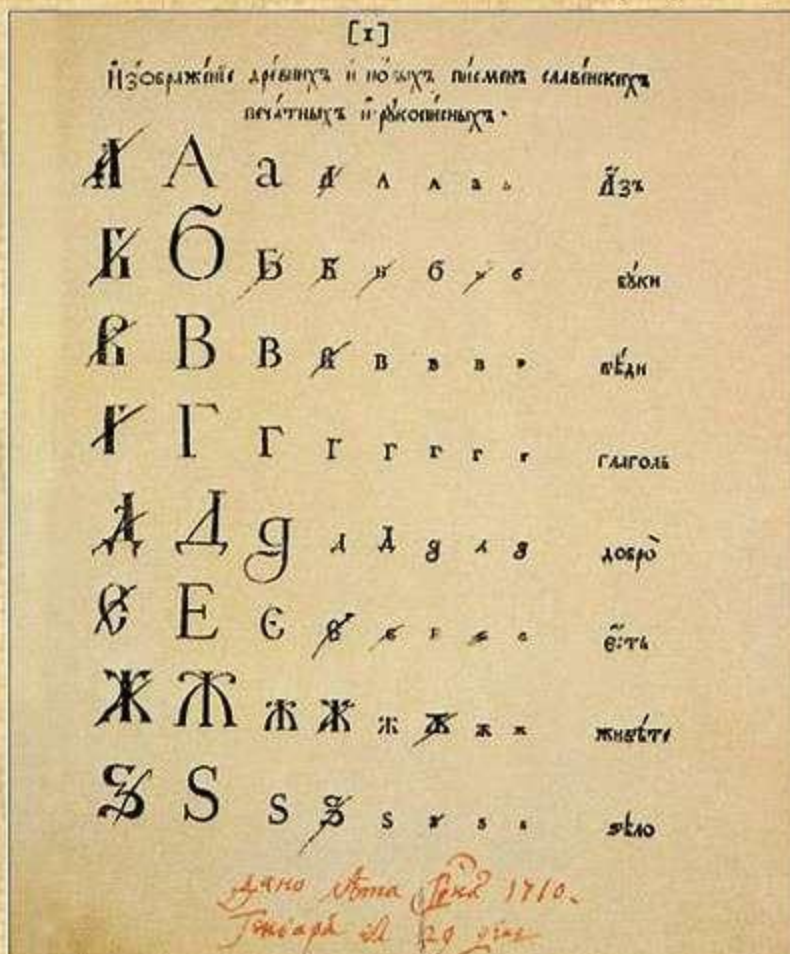 [1]
Изѡбраже́нїе дре́внихъ и но́выхъ пи́сменъ славе́нскихъ
печа́тныхъ и рꙋкопи́сныхъ.
А А а а а а а а А҆́зъ
Б Б Б Б Б б б б бꙋ́ки
В В в в в в в в вѣ́ди
Г Г г г г г г г глаго́ль
Д Д д д д д д д добро̀
Є Е є є е е е е є҆́сть
Ж Ж ж ж ж ж ж ж живѣ́те
Ѕ Ѕ ѕ ѕ ѕ ѕ ѕ ѕ ѕѣло̀
дано лѣта 1710.
Генваря 29 дня